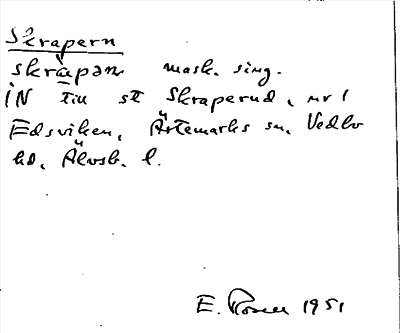 Skrapern
skrɑ̀pən mask. sing.
IN till st Skraperud, nr 1
Edsviken, Ärtemarks sn, Vedbo
hd, Älvsb. l.
E. Rosell 1951